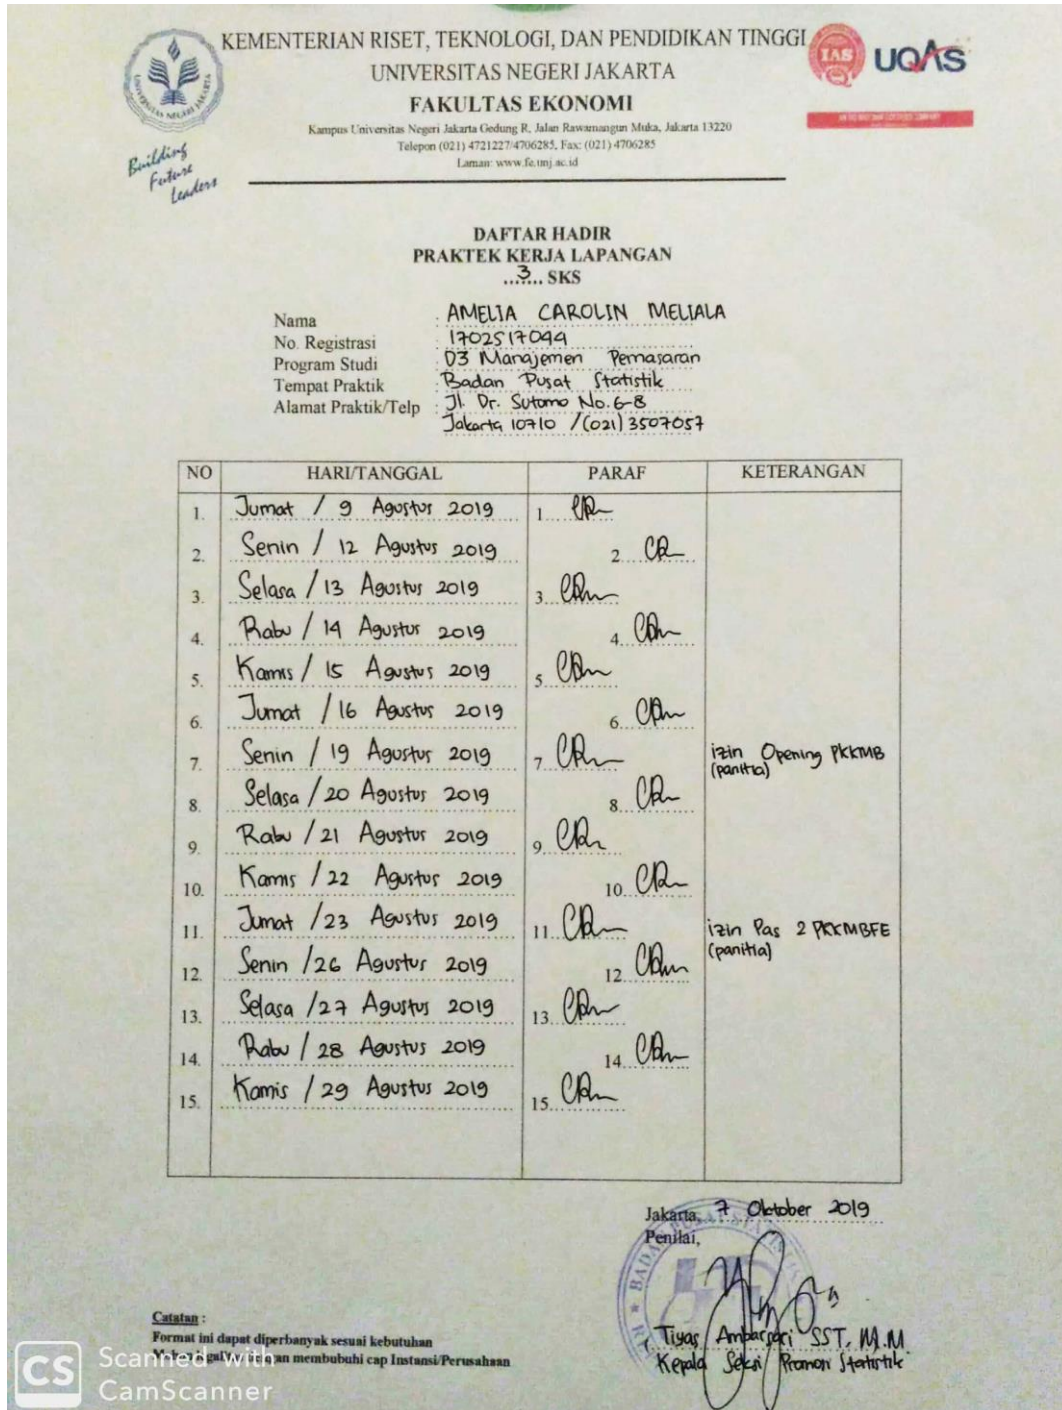 KEMENTERIAN RISET, TEKNOLOGI, DAN PENDIDIKAN TINGGI
UNIVERSITAS NEGERI JAKARTA
FAKULTAS EKONOMI
Kampus Universitas Negeri Jakarta Gedung R, Jalan Rawamangun Muka, Jakarta 13220
Telepon (021) 4721227/4706285, Fax: (021) 4706285
Laman: www.fe.unj.ac.id
UNIVERSITAS NEGERI JAKARTA
Building
Future
Leaders
IAS
UQAS
DAFTAR HADIR
PRAKTEK KERJA LAPANGAN
...3... SKS
Nama : AMELIA CAROLIN MELIALA
No. Registrasi : 1702517044
Program Studi : D3 Manajemen Pemasaran
Tempat Praktik : Badan Pusat Statistik
Alamat Praktik/Telp : Jl. Dr. Sutomo No. 6-8
Jakarta 10710 / (021) 3507057
NO HARI/TANGGAL PARAF KETERANGAN
1. Jumat / 9 Agustus 2019 1
2. Senin / 12 Agustus 2019 2
3. Selasa / 13 Agustus 2019 3
4. Rabu / 14 Agustus 2019 4
5. Kamis / 15 Agustus 2019 5
6. Jumat / 16 Agustus 2019 6
7. Senin / 19 Agustus 2019 7 izin Opening PKKMB
(panitia)
8. Selasa / 20 Agustus 2019 8
9. Rabu / 21 Agustus 2019 9
10. Kamis / 22 Agustus 2019 10
11. Jumat / 23 Agustus 2019 11 izin Pas 2 PKKMBFE
(panitia)
12. Senin / 26 Agustus 2019 12
13. Selasa / 27 Agustus 2019 13
14. Rabu / 28 Agustus 2019 14
15. Kamis / 29 Agustus 2019 15
Jakarta, 7 Oktober 2019
Penilai,
BADAN PUSAT STATIS
Tiyas Ambarsari SST, M.M
Kepala Seksi Promosi Statistik
Catatan :
Format ini dapat diperbanyak sesuai kebutuhan
membubuhi cap Instansi/Perusahaan
CS Scanned with
CamScanner